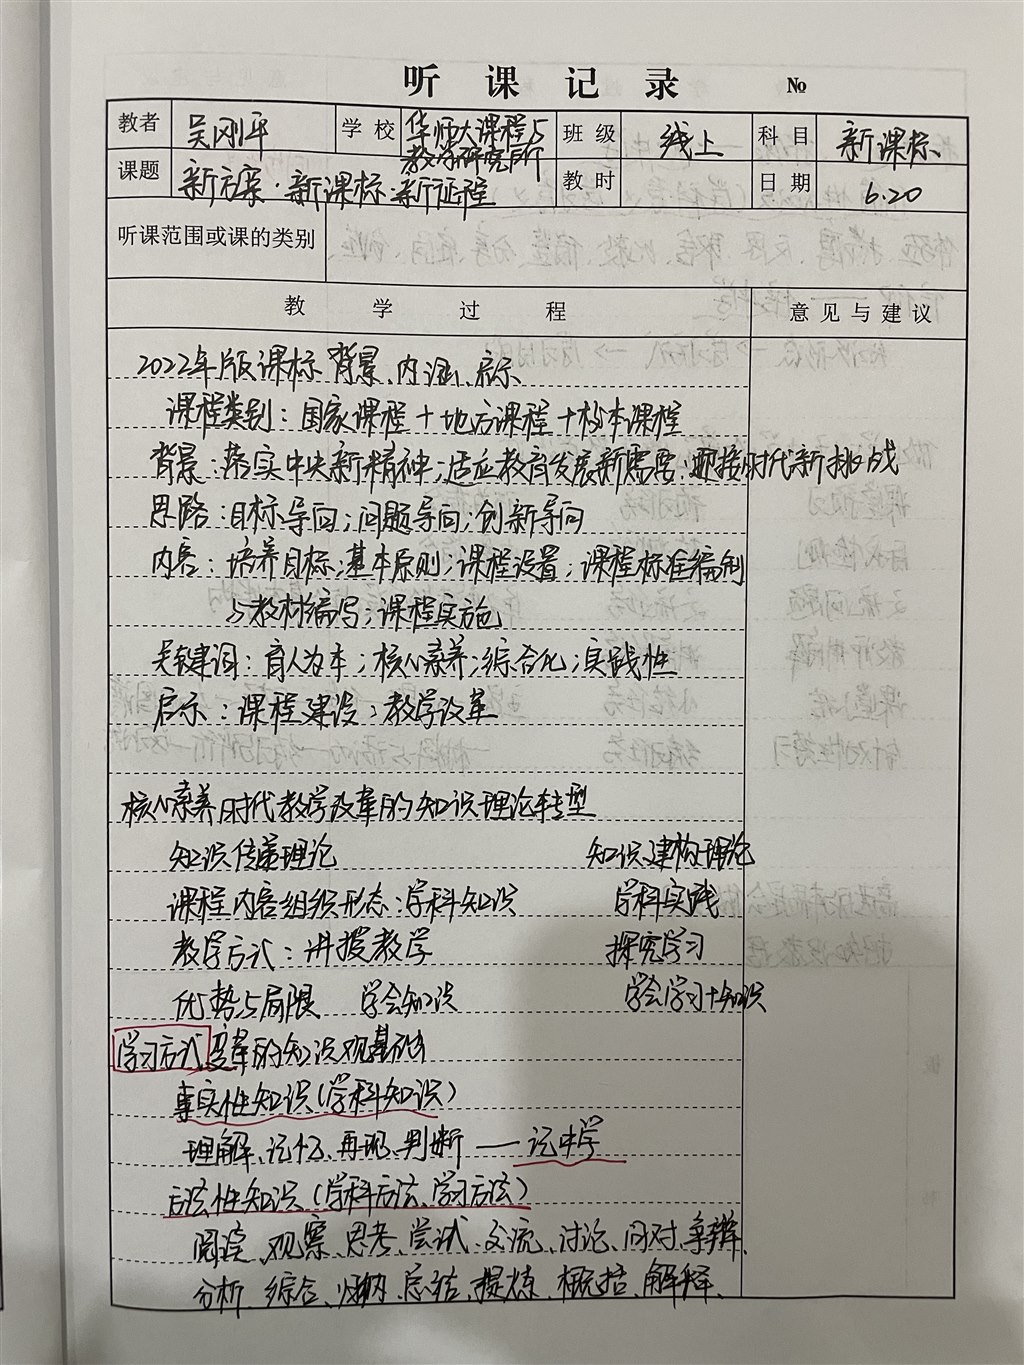 听课记录 №
教者 吴刚平 学校 华师大课程与教学研究所 班级 线上 科目 新课标
课题 新方案·新课标·新征程 教时 日期 6.20
听课范围或课的类别
教学过程 意见与建议
2022年版课标 背景、内涵、启示
课程类别：国家课程＋地方课程＋校本课程
背景：落实中央新精神；适应教育发展新需要；迎接时代新挑战
思路：目标导向；问题导向；创新导向
内容：培养目标；基本原则；课程设置；课程标准编制
与教材编写；课程实施
关键词：育人为本；核心素养；综合化；实践性
启示：课程建设；教学改革
核心素养时代教学改革的知识理论转型
知识传递理论 知识建构理论
课程内容组织形态：学科知识 学科实践
教学方式：讲授教学 探究学习
优势与局限 学会知识 学会学习+知识
学习方式变革的知识观基础
事实性知识（学科知识）
理解、记忆、再现、判断——记中学
方法性知识（学科方法、学习方法）
阅读、观察、思考、尝试、交流、讨论、同对、争辩、
分析、综合、归纳、总结、提炼、概括、解释、